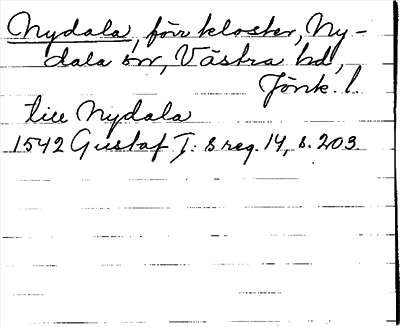 Nydala, förr kloster, Ny-
dala sn, Västra hd,
Jönk. l.
till Nydala
1542 Gustaf I: s reg. 14, s. 203.